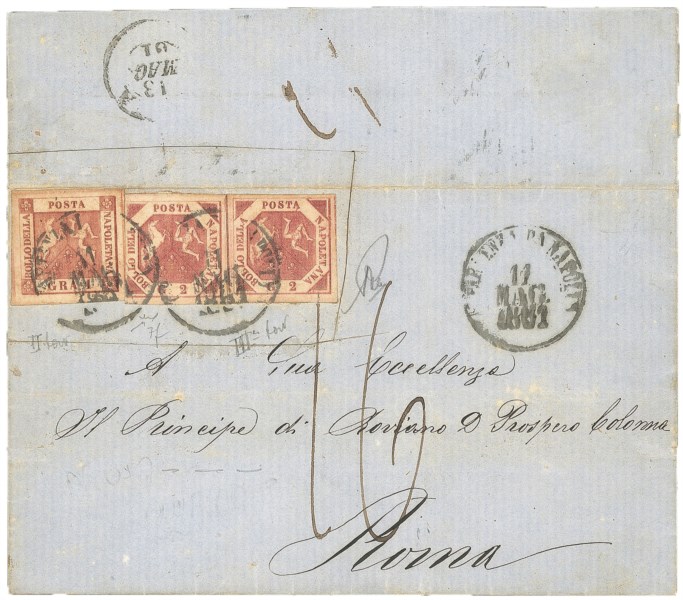 13
MAG
61
POSTA
BOLLO DELLA
NAPOLETANA
POSTA
BOLLO DELLA
NAPOLETANA
2
2
POSTA
BOLLO DELLA
NAPOLETANA
2
2
PARTENZA DA NAPOLI
11
MAG.
1861
A Sua Eccellenza
Il Principe di Roviano D Prospero Colonna
16
Roma